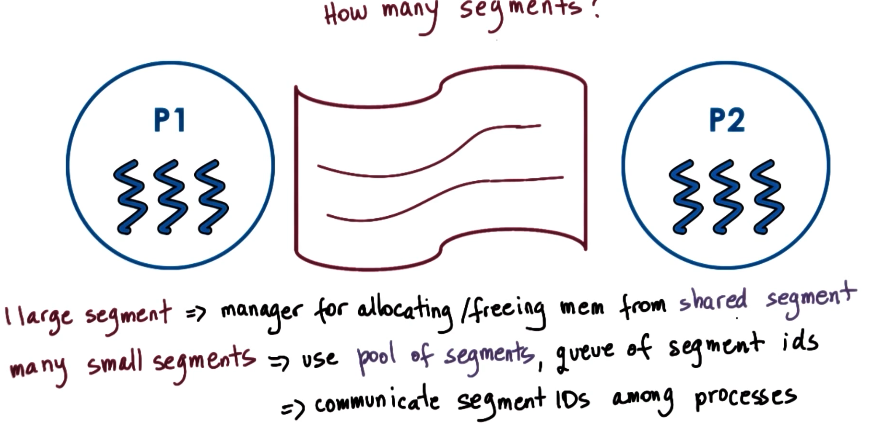 How many segments?
P1
P2
1 large segment => manager for allocating/freeing mem from shared segment
many small segments => use pool of segments, queue of segment ids
=> communicate segment IDs among processes